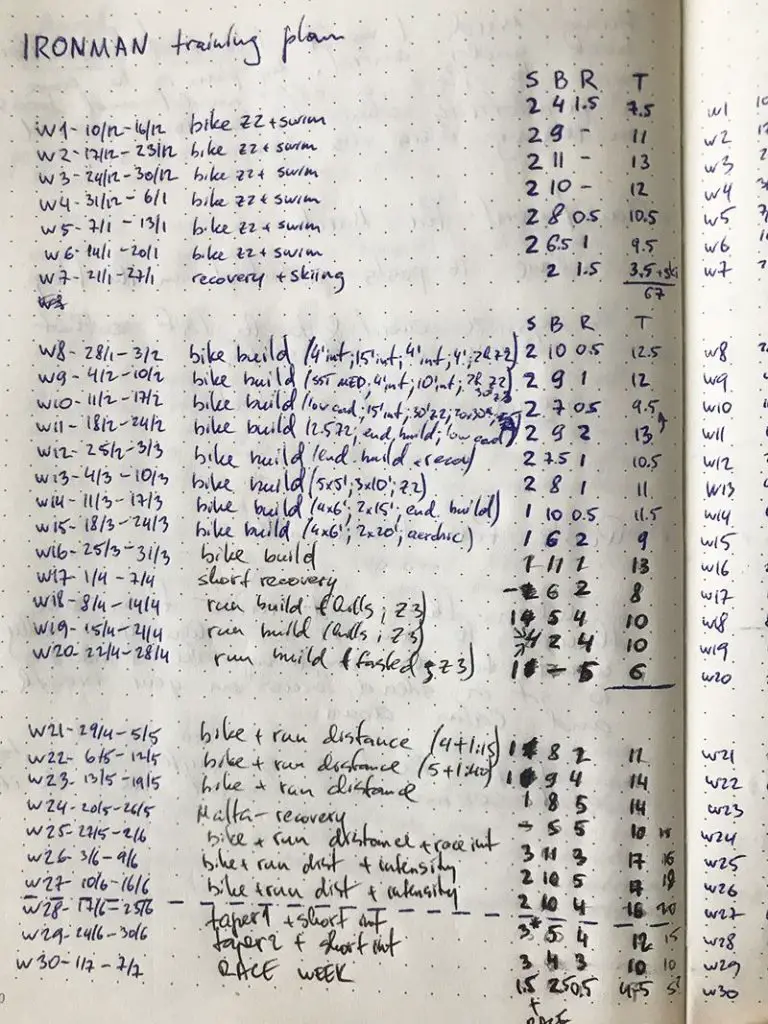 IRONMAN training plan
S B R T
w1 - 10/12 - 16/12 bike z2 + swim 2 4 1.5 7.5
w2 - 17/12 - 23/12 bike z2 + swim 2 9 - 11
w3 - 24/12 - 30/12 bike z2 + swim 2 11 - 13
w4 - 31/12 - 6/1 bike z2 + swim 2 10 - 12
w5 - 7/1 - 13/1 bike z2 + swim 2 8 0.5 10.5
w6 - 14/1 - 20/1 bike z2 + swim 2 6.5 1 9.5
w7 - 21/1 - 27/1 recovery + skiing 2 1.5 3.5 + ski
67
S B R T
w8 - 28/1 - 3/2 bike build (4'int; 15'int; 4'int; 4'; 2h z2) 2 10 0.5 12.5
w9 - 4/2 - 10/2 bike build (SST MED, 4'int; 10'int; 2h z2) 2 9 1 12
w10 - 11/2 - 17/2 bike build (low cad; 15'int; 30'z2; 2 7 0.5 9.5
w11 - 18/2 - 24/2 bike build (2.5 z2, end. build; low cad) 2 9 2 13
w12 - 25/2 - 3/3 bike build (end. build + recov) 2 7.5 1 10.5
w13 - 4/3 - 10/3 bike build (5x5'; 3x10'; z2) 2 8 1 11
w14 - 11/3 - 17/3 bike build (4x6'; 2x15'; end. build) 1 10 0.5 11.5
w15 - 18/3 - 24/3 bike build (4x6'; 2x20'; aerobic) 1 6 2 9
w16 - 25/3 - 31/3 bike build 1 11 1 13
w17 - 1/4 - 7/4 short recovery - 6 2 8
w18 - 8/4 - 14/4 run build (hills; z3) 1 5 4 10
w19 - 15/4 - 21/4 run build (hills; z3) 4 2 4 10
w20 - 22/4 - 28/4 run build (fasted; z3) 1 - 5 6
w21 - 29/4 - 5/5 bike + run distance (4+1:15) 1 8 2 11
w22 - 6/5 - 12/5 bike + run distance (5+1:40) 1 9 4 14
w23 - 13/5 - 19/5 bike + run distance 1 8 5 14
w24 - 20/5 - 26/5 Malta - recovery - 5 5 10 15
w25 - 27/5 - 2/6 bike + run distance + race int 3 11 3 17 16
w26 - 3/6 - 9/6 bike + run dist + intensity 2 10 5 17 18
w27 - 10/6 - 16/6 bike + run dist + intensity 2 10 4 16 20
w28 - 17/6 - 23/6 taper1 + short int 3* 5 4 12 15
w29 - 24/6 - 30/6 taper2 + short int 3 4 3 10 10
w30 - 1/7 - 7/7 RACE WEEK 1.5 2.5 0.5 4.5 5?
+
RACE
w1
w2
w3
w4
w5
w6
w7
w8
w9
w10
w11
w12
w13
w14
w15
w16
w17
w18
w19
w20
w21
w22
w23
w24
w25
w26
w27
w28
w29
w30